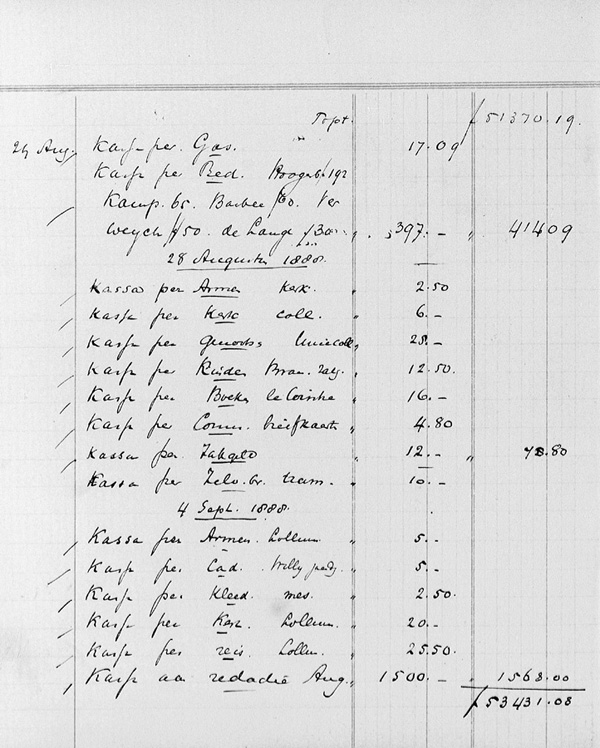 Tspt. ƒ 51370.19.
24 Aug. Kassa per Gas. " 17.09
Kassa per Red. Hooger 6/192
Kamp. 65. Barbee /60. Ver
Weych ƒ50. de Lange ƒ30. " 397.- " 41409
28 Augustus 1888.
Kassa per Armen Kerk. " 2.50
Kassa per Kerk coll. " 6.-
Kassa per " 25.-
Kassa per Kinder " 12.50.
Kassa per Boeken le Cointre " 16.-
Kassa per Comm. briefkaart " 4.80
Kassa per Zakgeld " 12.- " 78.80
Kassa per tram. " 10.-
4 Sept. 1888.
Kassa per Armen. Lollum. " 5.-
Kassa per Cad. Willy " 5.-
Kassa per Kleed. mes. " 2.50.
Kassa per Kerk. Lollum. " 20.-
Kassa per reis. Lollum. " 25.50.
Kassa aan redactie Aug. " 1500.- " 1568.00
ƒ 53431.08